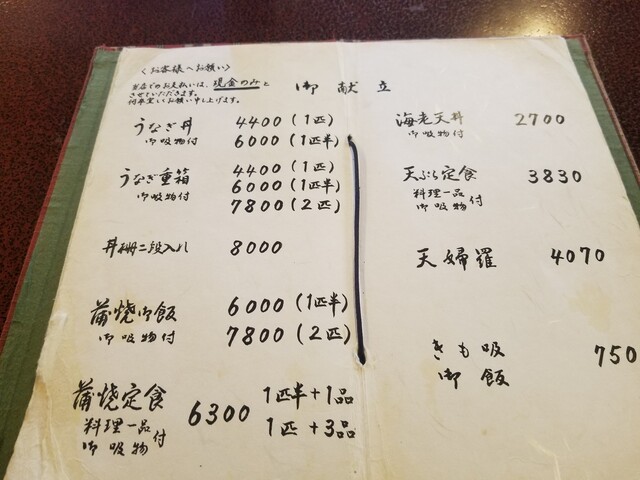 <お客様へお願い>
当店でのお支払いは、現金のみと
させていただきます。
何卒宜しくお願い申し上げます。
御献立
うなぎ丼 4400 (1匹)
御吸物付 6000 (1匹半)
うなぎ重箱 4400 (1匹)
御吸物付 6000 (1匹半)
7800 (2匹)
丼櫃二段入れ 8000
蒲焼御飯 6000 (1匹半)
御吸物付 7800 (2匹)
蒲焼定食 6300 1匹半+1品
料理一品
御吸物付 1匹+3品
海老天丼 2700
御吸物付
天ぷら定食 3830
料理一品
御吸物付
天婦羅 4070
きも吸 750
御飯